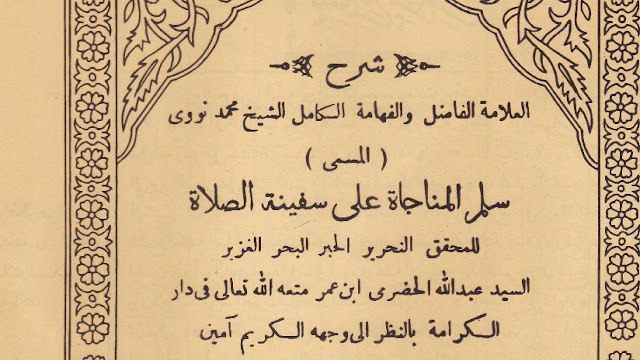 شرح
العلامة الفاضل والفهامة الكامل الشيخ محمد نووى
( المسمى )
سلم المناجاة على سفينة الصلاة
للمحقق النحرير الحبر البحر الغزير
السيد عبدالله الحضرمى ابن عمر متعه الله تعالى فى دار
الكرامة بالنظر الى وجهه الكريم آمين